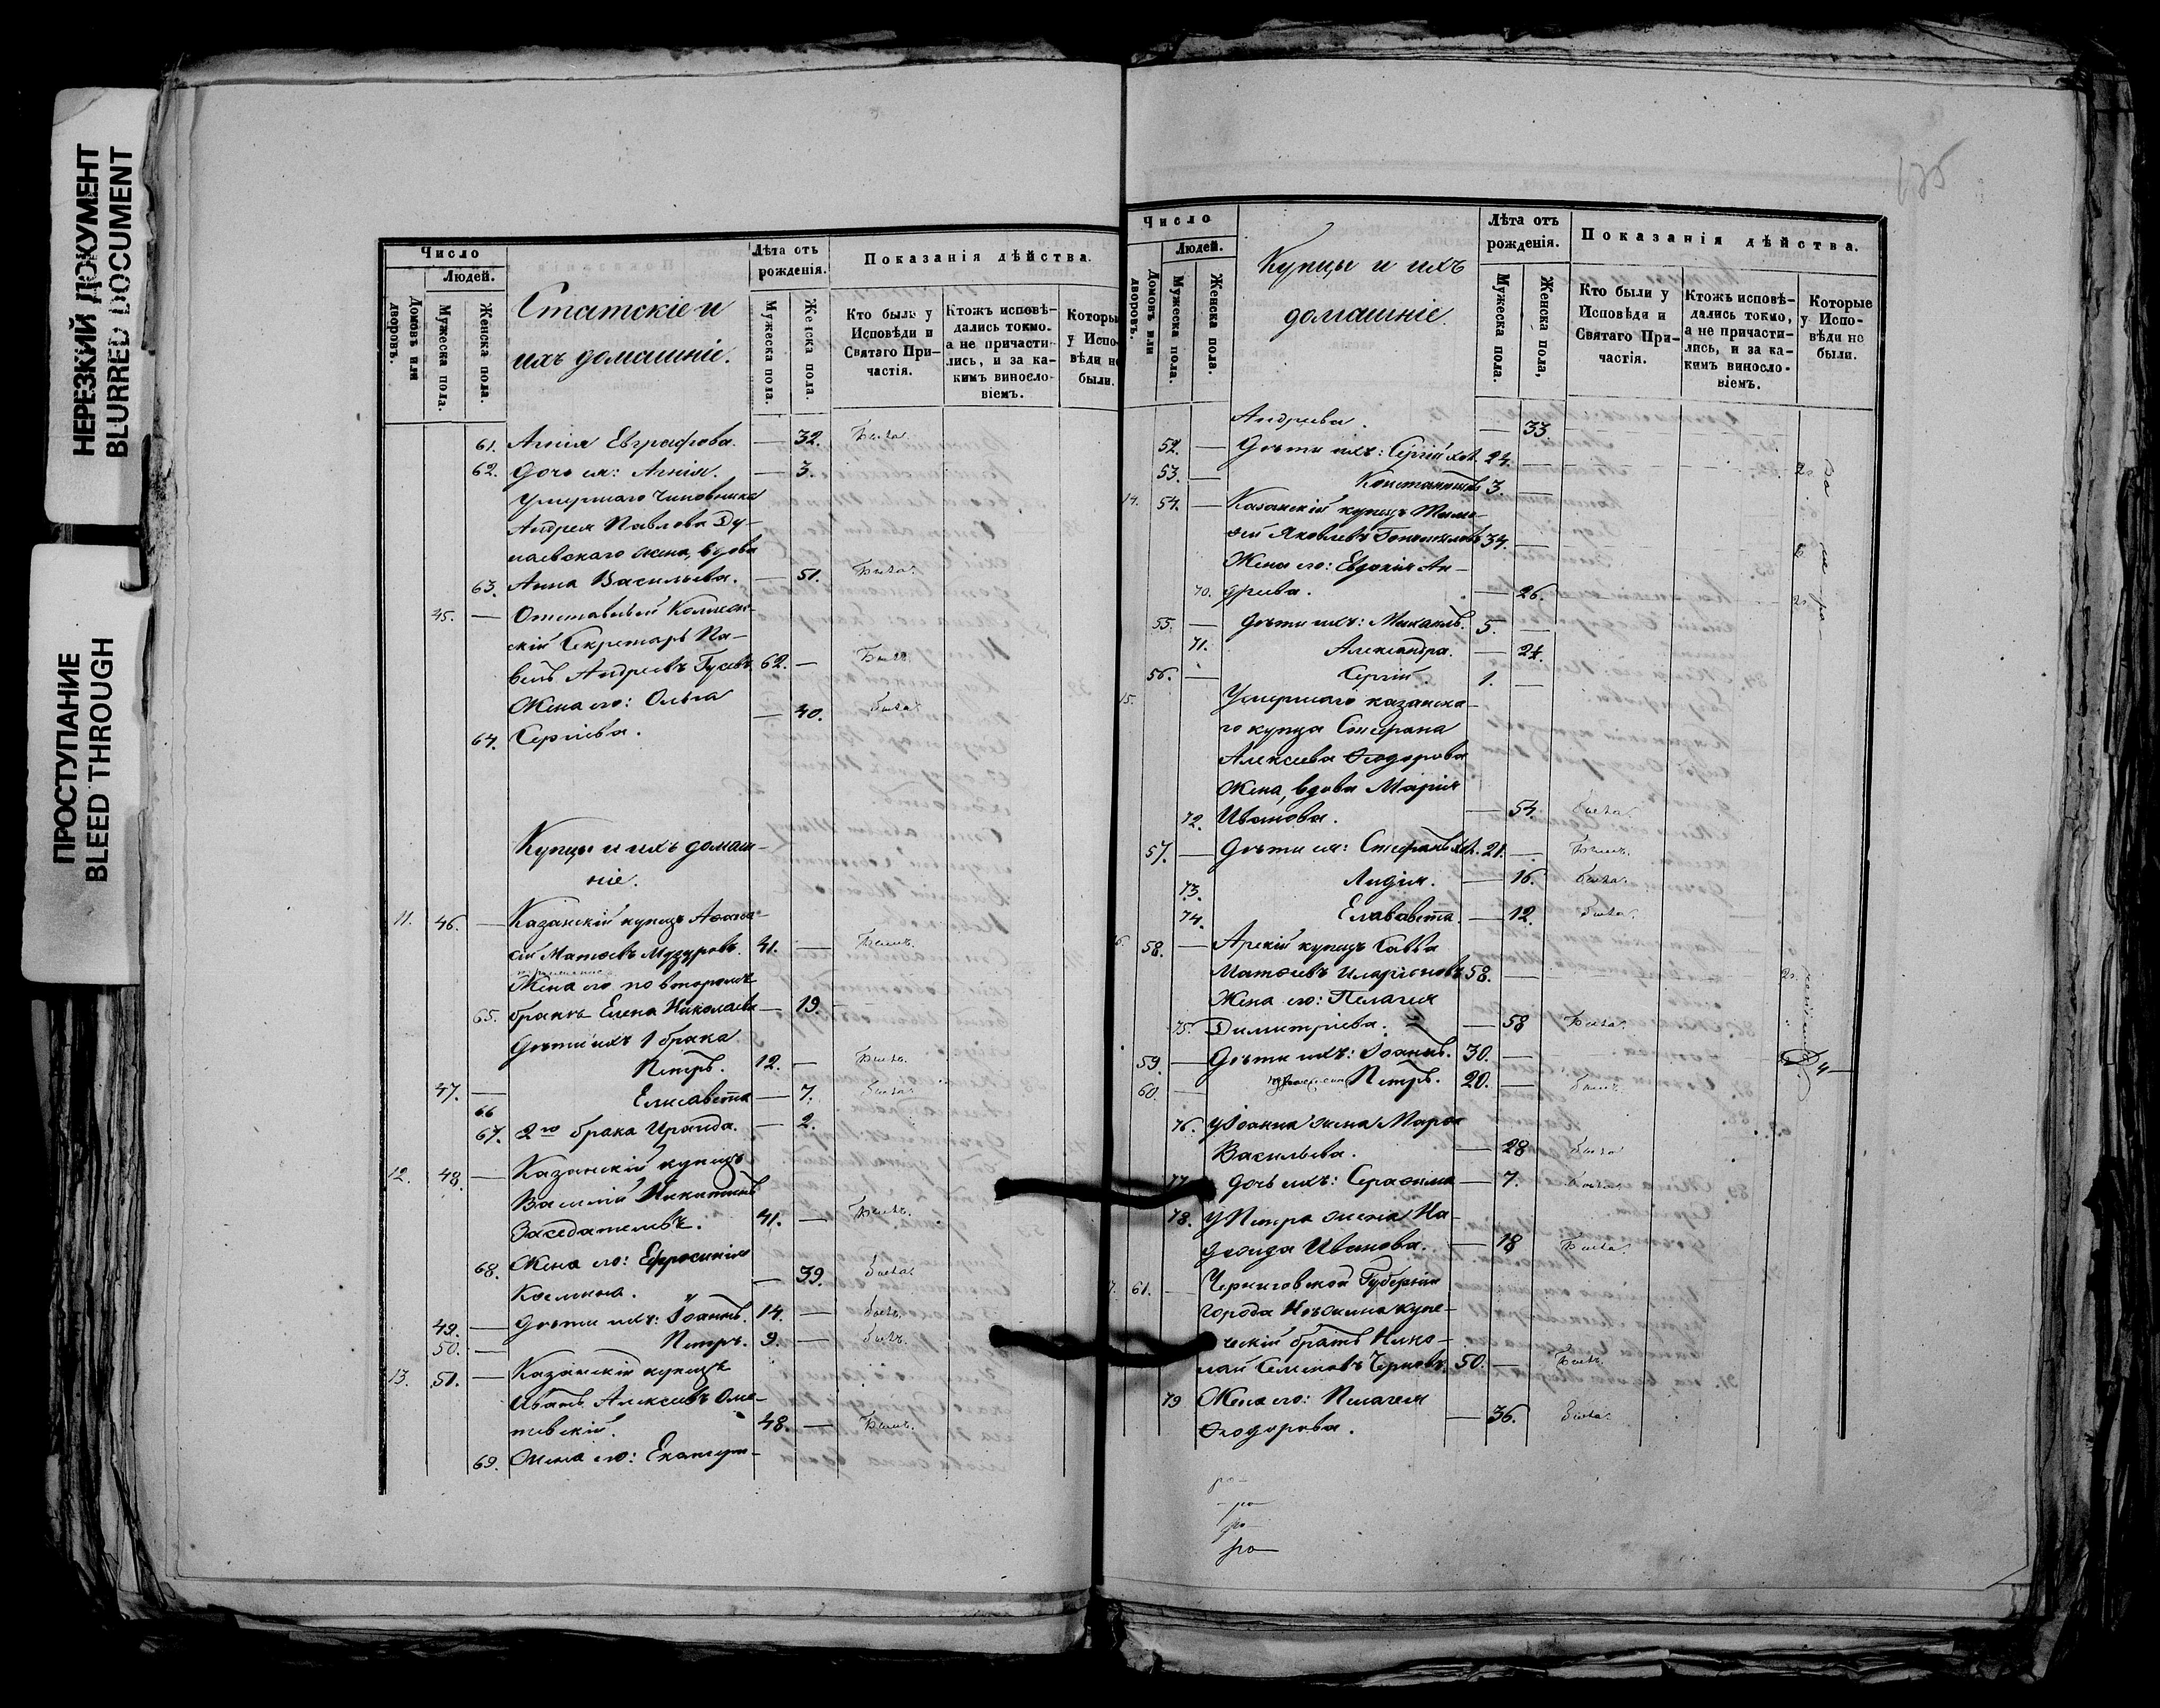 НЕРЕЗКИЙ ДОКУМЕНТ
BLURRED DOCUMENT
ПРОСТУПАНИЕ
BLEED THROUGH
Число
Людей.
Домовъ или дворовъ.
Мужеска пола.
Женска пола.
Статскіе и
ихъ домашніе.
Лѣта отъ рожденія.
Мужеска пола.
Женска пола.
Показанія дѣйства.
Кто были у Исповѣди и Святаго При-частія.
Ктожъ исповѣ-дались токмо, а не причасти-лись, и за ка-кимъ винosло-віемъ.
Которы у Испо-вѣди не были.
61. Агнія Евграфова. — 32. Была.
62. Дочь ея: Агнія. — 3.
Умершаго Чиновника
Андрея Павлова Ду-
наевскаго жена, вдова
63. Анна Васильева. — 51. Была.
45. — Отставный Коллеж-
скій Секретарь Па-
велъ Андреевъ Гусевъ. 62. — Былъ.
Жена его: Ольга
64. Сергіева. — 40. была.
Купцы и ихъ домаш-
ніе.
11. 46. — Казанскій купецъ Аѳана-
сій Матѳеевъ 41. — Былъ.
Жена его по второму
65. браку Елена Николаева — 19.
Дѣти ихъ 1 брака
47. — Петръ. 12. — былъ.
66 Елисавета — 7. была.
67. 2го брака Ираида. — 2.
12. 48. — Казанскій купецъ
Василій Никитинъ
Заседателевъ. 41. — Былъ.
68. Жена его: Ефросинія
Козмина. — 39. была.
49. — Дѣти ихъ: Іоаннъ. 14. — былъ.
50. — Петръ. 9. — былъ.
13. 51. — Казанскій купецъ
Иванъ Алексѣевъ Оме-
тевскій. 48. — Былъ.
69. Жена его: Екатери-
135
Число
Людей.
Домовъ или дворовъ.
Мужеска пола.
Женска пола.
Купцы и ихъ
домашніе.
Лѣта отъ рожденія.
Мужеска пола.
Женска пола,
Показанія дѣйства.
Кто были у Исповѣди и Святаго При-частія.
Ктожъ исповѣ-дались токмо, а не причасти-лись, и за ка-кимъ винosло-віемъ.
Которые у Испо-вѣди не были.
Андреева. — 33.
52. — Дѣти ихъ: Сергій хол. 24. —
53. — Константинъ 3. —
14. 54. — Казанскій купецъ Тимо-
ѳей Яковлевъ 34. —
Жена его: Евдокія Ан-
70. дреева. — 26.
55. — Дѣти ихъ: Михаилъ. 5. —
71. Александра. — 2
56. — Сергій 1. —
15. Умершаго казанска-
го купца Стефана
Алексѣева Ѳеодорова
жена, вдова Марія
72. Иванова. — 54. была.
57. — Дѣти ея: Стефанъ хол. 21. — Былъ.
73. Лидія. — 16. была.
74. Елизавета. — 12. была.
58. — Арскій купецъ Савва
Матѳеевъ Иларіоновъ 58. —
Жена его: Пелагея
75. Димитріева. — 58 Была.
59. — Дѣти ихъ: Іоаннъ. 30. —
60. — Петръ. 20. — былъ.
76. У Іоанна жена Марѳа
Васильева. — 28 была
77. Дочь ихъ: Серафима — 7. была.
78. У Петра жена На-
дежда Иванова. — 18 Была.
61. — Черниговской Губерніи
города Нѣжина купе-
ческій братъ Нико-
лай Семеновъ Черновъ. 50. — Былъ.
79 Жена его: Пелагея
Ѳеодорова. — 36. была.
ро
ро
ро
ро